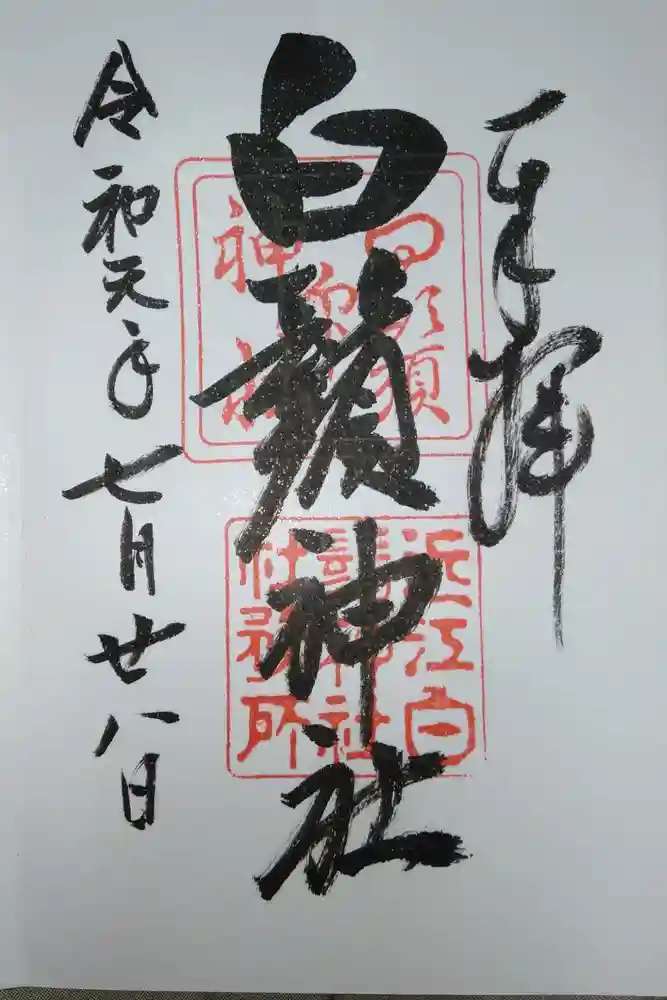 奉拝
白鬚神社
近江白
鬚神社
社務所
令和元年七月廿八日